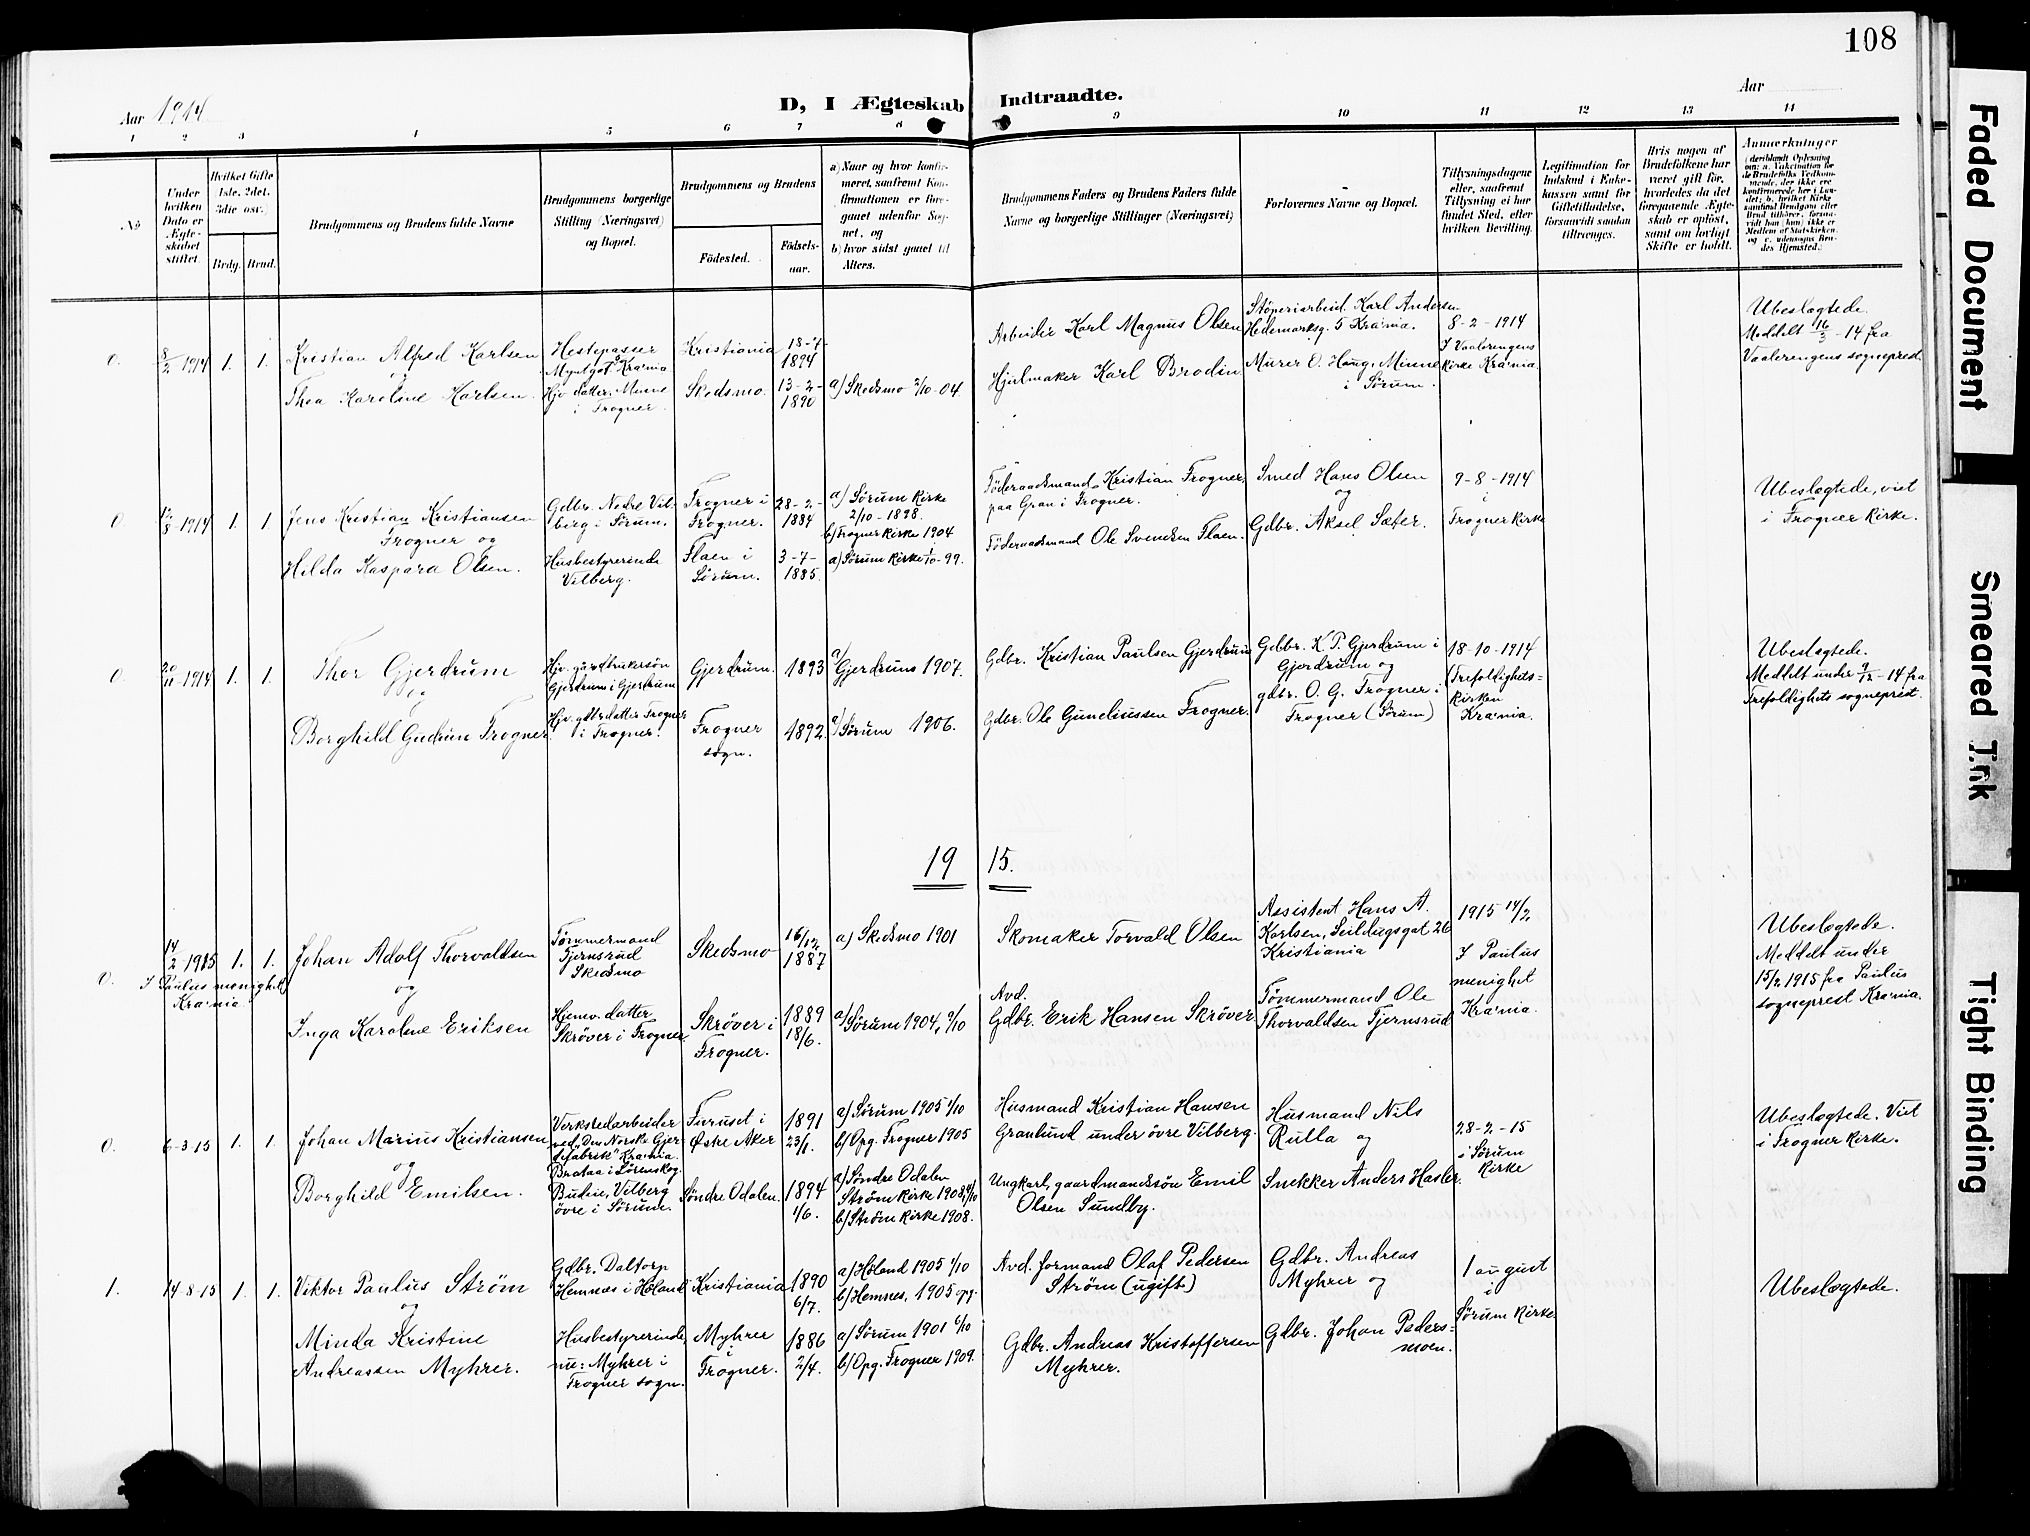 108
Aar 1914
D, I Ægteskab Indtraadte.
Aar
1 2 3 4 5 6 7 8 9 10 11 12 13 14
No
Under hvilken Dato er Ægteskabet stiftet.
Hvilket Gifte 1ste, 2det, 3die osv.
Brdg. Brud.
Brudgommens og Brudens fulde Navne
Brudgommens borgerlige Stilling (Næringsvei) og Bopæl.
Brudgommens og Brudens
Födested.
Födselsaar.
a) Naar og hvor konfirmeret, saafremt Konfirmationen er foregaaet udenfor Sognet, og
b) hvor sidst gaaet til Alters.
Brudgommens Faders og Brudens Faders fulde Navne og borgerlige Stillinger (Næringsvei)
Forlovernes Navne og Bopæl.
Tillysningsdagene eller, saafremt Tillysning ei har fundet Sted, efter hvilken Bevilling.
Legitimation for Indskud i Enkekassen samt for Giftetilladelse, forsaavidt saadan tiltrænges.
Hvis nogen af Brudefolkene har været gift før, hvorledes da det foregaaende Ægteskab er opløst, samt om lovligt Skifte er holdt.
Anmærkninger
0. 8/2 1914 1. 1.
Kristian Alfred Karlsen
og
Thea Karoline Karlsen.
Hestepasser
Myntgt Kra:nia
Hjv. datter. Minne
i Frogner.
Kristiania
Skedsmo.
18-7-
1894
13-2-
1890
a) Skedsmo 2/10-04.
Arbeider Karl Magnus Olsen
Hjulmaker Karl Brodin
Støperiarbeid. Karl Andersen
Hedemarksg. 5 Kra:nia.
Murer O. Haug, Minne
i Sørum.
8-2-1914
I Vaalerengens
Kirke Kra:nia.
Ubeslogtede.
Meddelt 16/3-14 fra
Vaalerengens sogneprest.
0 12/8-1914 1. 1.
Jens Kristian Kristiansen
Frogner og
Hilda Kaspara Olsen.
Gdbr. Nedre Vil-
berg i Sørum.
Husbestyrerinde
Vilberg.
Frogner i
Frogner.
Flaen i
Sørum.
28-2-
1884
3-7-
1885.
a) Sørum Kirke
2/10-1898.
b) Frogner Kirke 1904
a) Sørum Kirke 1/10-99.
Föderaadsmand Kristian Frogner,
paa Gran i Frogner.
Föderaadsmand Ole Svendsen Flaen.
Smed Hans Olsen
og
Gdbr. Aksel Sæter.
9-8-1914
i
Frogner Kirke
Ubeslogtede, viet
i Frogner Kirke.
0. 20/11-1914 1. 1.
Thor Gjerdrum
og
Borghild Gudrun Frogner
Hjv. gårdbrukersön
Gjerdrum i Gjerdrum
Hjv. gdbrdatter Frogner
i Frogner.
Gjerdrum.
Frogner
sogn.
1893
1892
a) Gjerdrum 1907.
a) Sørum 1906.
Gdbr. Kristian Paulsen Gjerdrum
Gdbr. Ole Guneliussen Frogner.
Gdbr. K. P. Gjerdrum i
Gjerdrum og
gdbr. O. G. Frogner i
Frogner (Sørum)
18-10-1914
(Trefoldigheds-
kirken
Kra:nia.
Ubeslogtede.
Meddelt under 9/12-14 fra
Trefoldighets sogneprest.
19 15.
0. 14/2-1915 1. 1.
I Paulus menighet
Kra:nia
Johan Adolf Thorvaldsen
og
Inga Karolene Eriksen
Tømmermand
Tjernsrud
Skedsmo
Hjemv. datter
Skrøver i Frogner
Skedsmo
Skrøver i
Frogner.
16/12
1887
1889
18/6.
a) Skedsmo 1901
a) Sørum 1904, 9/10
Skomaker Torvald Olsen
Avd.
Gdbr. Erik Hansen Skrøver
Assistent Hans A.
Karlsen, Seildugsgat 26
Kristiania
Tømmermand Ole
Thorvaldsen Tjernsrud
1915 14/2
I Paulus
menighet
Kra:nia.
Ubeslogtede.
Meddelt under
15/2 1915 fra Paulus
sogneprest Kra:nia.
0. 6-3-15 1. 1.
Johan Marius Kristiansen
og
Borghild Emilsen.
Verkstedarbeider
ved "Den Norske Gjer-
defabrik" Kra:nia.
Brataa i Lørenskog
Budeie, Vilberg
övre i Sørum.
Furuset i
Østre Aker
Søndre Odalen.
1891
23/1.
1894
1/6.
a) Sørum 1905 1/10
b) Opg. Frogner 1905
a) Søndre Odalen
Strøm Kirke 1908, 4/10
b) Strøm Kirke 1908.
Husmand Kristian Hansen
Granlund under övre Vilberg.
Ungkarl, gaardmandssön Emil
Olsen Sundby.
Husmand Nils
Rulla og
Snekker Anders Hasler.
28-2-15
i Sørum
Kirke
Ubeslogtede. Viet
i Frogner Kirke.
1. 14-8-15 1. 1.
Viktor Paulus Strøm
og
Minda Kristine
Andreassen Myhrer.
Gdbr. Daltorp
Hemnæs i Höland
Husbestyrerinde,
nu: Myhrer i
Frogner sogn.
Kristiania
Myhrer
i
Frogner.
1890
6/7.
1886
2/4.
a) Höland 1905 1/10
b) Hemnes, 1905 opg.
a) Sørum 1901 6/10
b) Opg. Frogner 1909.
Avd. formand Olaf Pedersen
Strøm (ugift)
Gdbr. Andreas Kristoffersen
Myhrer.
Gdbr. Andreas
Myhrer og
Gdbr. Johan Peders-
moen.
1 august
i
Sørum Kirke
Ubeslogtede.
Faded Document
Smeared Ink
Tight Binding